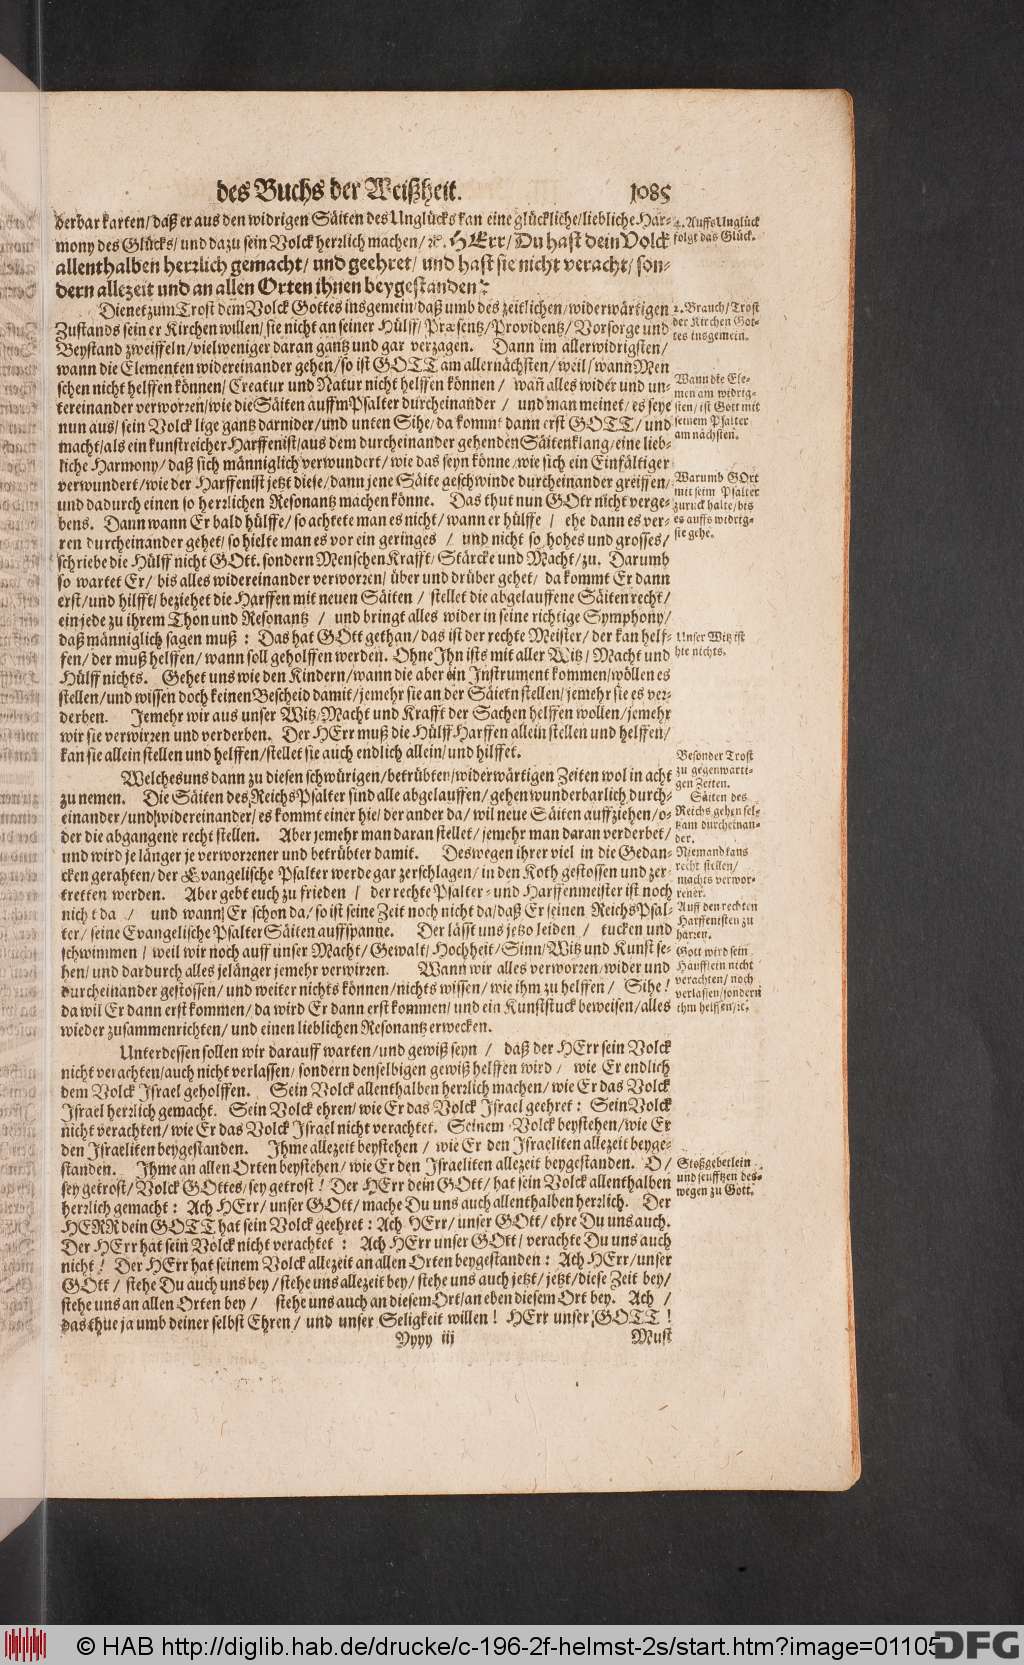 des Buchs der Weißheit. 1085
derbar karten/ daß er aus den widrigen Säiten des Unglücks kan eine glückliche/ liebliche Har-
mony des Glücks/ und dazu sein Volck herrlich machen/ ꝛc. HErr/ Du hast dein Volck
allenthalben herrlich gemacht/ und geehret/ und hast sie nicht veracht/ son-
dern allezeit und an allen Orten ihnen beygestanden.
Dienet zum Trost dem Volck Gottes insgemein/ daß umb des zeitlichen/ widerwärtigen
Zustands seiner Kirchen willen/ sie nicht an seiner Hülff/ Præsentz/ Providentz/ Vorsorge und
Beystand zweiffeln/ vielweniger daran gantz und gar verzagen. Dann im allerwidrigsten/
wann die Elementen widereinander gehen/ so ist GOTT am allernächsten/ weil/ wann Men
schen nicht helffen können/ Creatur und Natur nicht helffen können / wañ alles wider und un-
tereinander verworren/ wie die Säiten auffm Psalter durcheinander / und man meinet/ es seye
nun aus/ sein Volck lige gantz darnider/ und unten Sihe/ da kommt dann erst GOTT/ und
macht/ als ein kunstreicher Harffenist/ aus dem durcheinander gehenden Säitenklang/ eine lieb-
liche Harmony/ daß sich männiglich verwundert/ wie das seyn könne/ wie sich ein Einfältiger
verwundert/ wie der Harffenist jetzt diese/ dann jene Säite geschwinde durcheinander greiffen/
und dadurch einen so herrlichen Resonantz machen könne. Das thut nun GOtt nicht verge-
bens. Dann wann Er bald hülffe/ so achtete man es nicht/ wann er hülffe / ehe dann es ver-
ren durcheinander gehet/ so hielte man es vor ein geringes / und nicht so hohes und grosses/
schriebe die Hülff nicht GOtt. sondern Menschen Krafft/ Stärcke und Macht/ zu. Darumb
so wartet Er/ bis alles widereinander verworren/ über und drüber gehet/ da kommt Er dann
erst/ und hilfft/ beziehet die Harffen mit neuen Säiten / stellet die abgelauffene Säiten recht/
ein jede zu ihrem Thon und Resonantz / und bringt alles wider in seine richtige Symphony/
daß männiglich sagen muß: Das hat GOtt gethan/ das ist der rechte Meister/ der kan helf-
fen/ der muß helffen/ wann soll geholffen werden. Ohne Ihn ists mit aller Witz/ Macht und
Hülff nichts. Gehet uns wie den Kindern/ wann die aber ein Instrument kommen/ wöllen es
stellen/ und wissen doch keinen Bescheid damit/ jemehr sie an der Säietn stellen/ jemehr sie es ver-
derben. Jemehr wir aus unser Witz/ Macht und Krafft der Sachen helffen wollen/ jemehr
wir sie verwirren und verderben. Der HErr muß die Hülff Harffen allein stellen und helffen/
kan sie allein stellen und helffen/ stellet sie auch endlich allein/ und hilffet.
Welches uns dann zu diesen schwürigen/ betrübten/ widerwärtigen Zeiten wol in acht
zu nemen. Die Säiten des Reichs Psalter sind alle abgelauffen/ gehen wunderbarlich durch-
einander/ und widereinander/ es kommt einer hie/ der ander da/ wil neue Säiten auffziehen/ o-
der die abgangene recht stellen. Aber jemehr man daran stellet/ jemehr man daran verderbet/
und wird je länger je verworrener und betrübter damit. Deswegen ihrer viel in die Gedan-
cken gerahten/ der Evangelische Psalter werde gar zerschlagen/ in den Koth gestossen und zer-
tretten werden. Aber gebt euch zu frieden / der rechte Psalter- und Harffenmeister ist noch
nicht da / und wann Er schon da/ so ist seine Zeit noch nicht da/ daß Er seinen Reichs Psal-
ter/ seine Evangelische Psalter Säiten auffspanne. Der lässt uns jetzo leiden / tucken und
schwimmen / weil wir noch auff unser Macht/ Gewalt/ Hochheit/ Sinn/ Witz und Kunst se-
hen/ und dardurch alles jelänger jemehr verwirren. Wann wir alles verworren/ wider und
durcheinander gestossen/ und weiter nichts können/ nichts wissen/ wie ihm zu helffen / Sihe!
da wil Er dann erst kommen/ da wird Er dann erst kommen/ und ein Kunststuck beweisen/ alles
wieder zusammenrichten/ und einen lieblichen Resonantz erwecken.
Unterdessen sollen wir darauff warten/ und gewiß seyn / daß der HErr sein Volck
nicht verachten/ auch nicht verlassen/ sondern denselbigen gewiß helffen wird / wie Er endlich
dem Volck Israel geholffen. Sein Volck allenthalben herrlich machen/ wie Er das Volck
Israel herrlich gemacht. Sein Volck ehren/ wie Er das Volck Israel geehret: Sein Volck
nicht verachten/ wie Er das Volck Israel nicht verachtet. Seinem Volck beystehen/ wie Er
den Israeliten beygestanden. Ihme allezeit beystehen / wie Er den Israeliten allezeit beyge-
standen. Ihme an allen Orten beystehen/ wie Er den Israeliten allezeit beygestanden. O/
sey getrost/ Volck GOttes/ sey getrost! Der HErr dein GOtt/ hat sein Volck allenthalben
herrlich gemacht: Ach HErr/ unser GOtt/ mache Du uns auch allenthalben herrlich. Der
HERR dein GOTT hat sein Volck geehret: Ach HErr/ unser GOtt/ ehre Du uns auch.
Der HErr hat sein Volck nicht verachtet : Ach HErr unser GOtt/ verachte Du uns auch
nicht! Der HErr hat seinem Volck allezeit an allen Orten beygestanden: Ach HErr/ unser
GOtt / stehe Du auch uns bey/ stehe uns allezeit bey/ stehe uns auch jetzt/ jetzt/ diese Zeit bey/
stehe uns an allen Orten bey / stehe uns auch an diesem Ort/ an eben diesem Ort bey. Ach /
das thue ja umb deiner selbst Ehren/ und unser Seligkeit willen! HErr unser GOTT!
Yyyy iij Must
4. Auffs Unglück
folgt das Glück.
2. Brauch/ Trost
der Kirchen Got-
tes insgemein.
Wann die Ele-
men am widrig-
sten/ ist Gott mit
seinem Psalter
am nächsten.
Warumb GOtt
mit seim Psalter
zuruck halte/ bis
es auffs widrig-
ste gehe.
Unser Witz ist
hie nichts.
Besonder Trost
zu gegenwärti-
gen Zeiten.
Säiten des
Reichs gehen sel-
tzam durcheinan-
der.
Niemand kans
recht stellen/
machts verwor-
rener.
Auff den rechten
Harffenisten zu
harren.
Gott wird sein
Häufflein nicht
verachten/ noch
verlassen/ sondern
ihm helffen/ ꝛc.
Stoßgebetlein
und seufftzen des-
wegen zu Gott.
© HAB http://diglib.hab.de/drucke/c-196-2f-helmst-2s/start.htm?image=01105
DFG